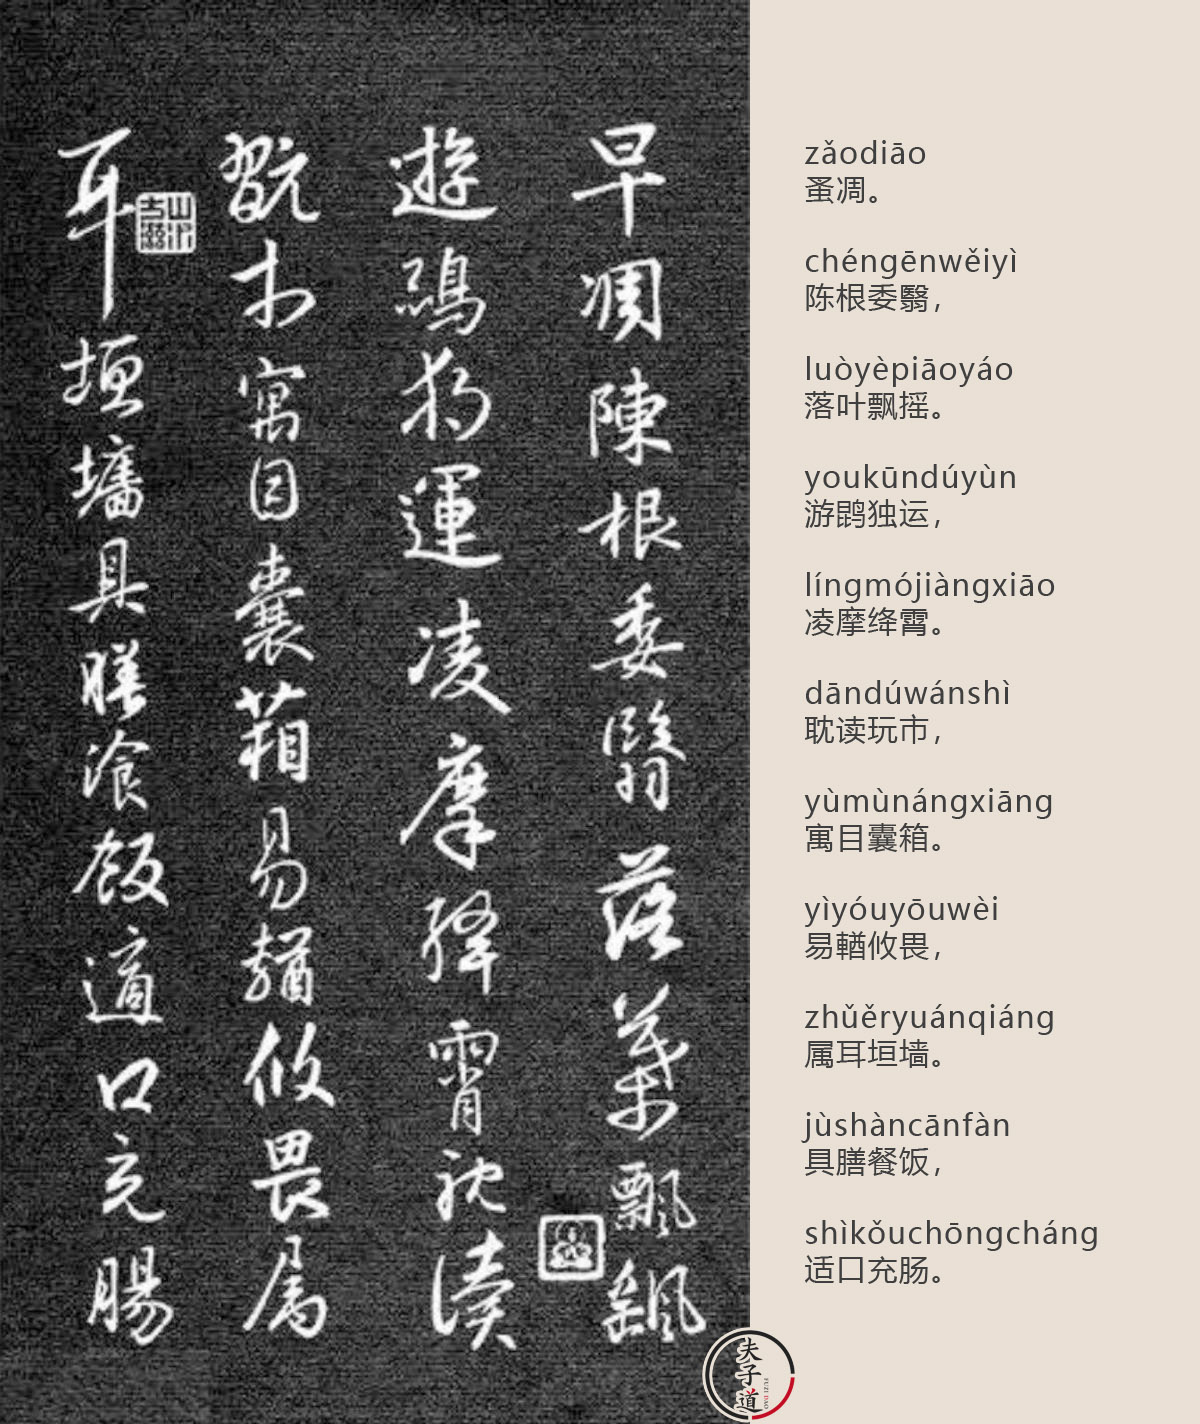 早凋陳根委翳落葉飄颻
遊鵾獨運凌摩絳霄耽讀
翫市寓目囊箱易輶攸畏属
耳垣墻具膳飡飯適口充腸
zǎodiāo
蚤凋。
chéngēnwěiyì
陈根委翳，
luòyèpiāoyáo
落叶飘摇。
youkūndúyùn
游鹍独运，
língmójiàngxiāo
凌摩绛霄。
dāndúwánshì
耽读玩市，
yùmùnángxiāng
寓目囊箱。
yìyóuyōuwèi
易輶攸畏，
zhǔěryuánqiáng
属耳垣墙。
jùshàncānfàn
具膳餐饭，
shìkǒuchōngcháng
适口充肠。
夫子道